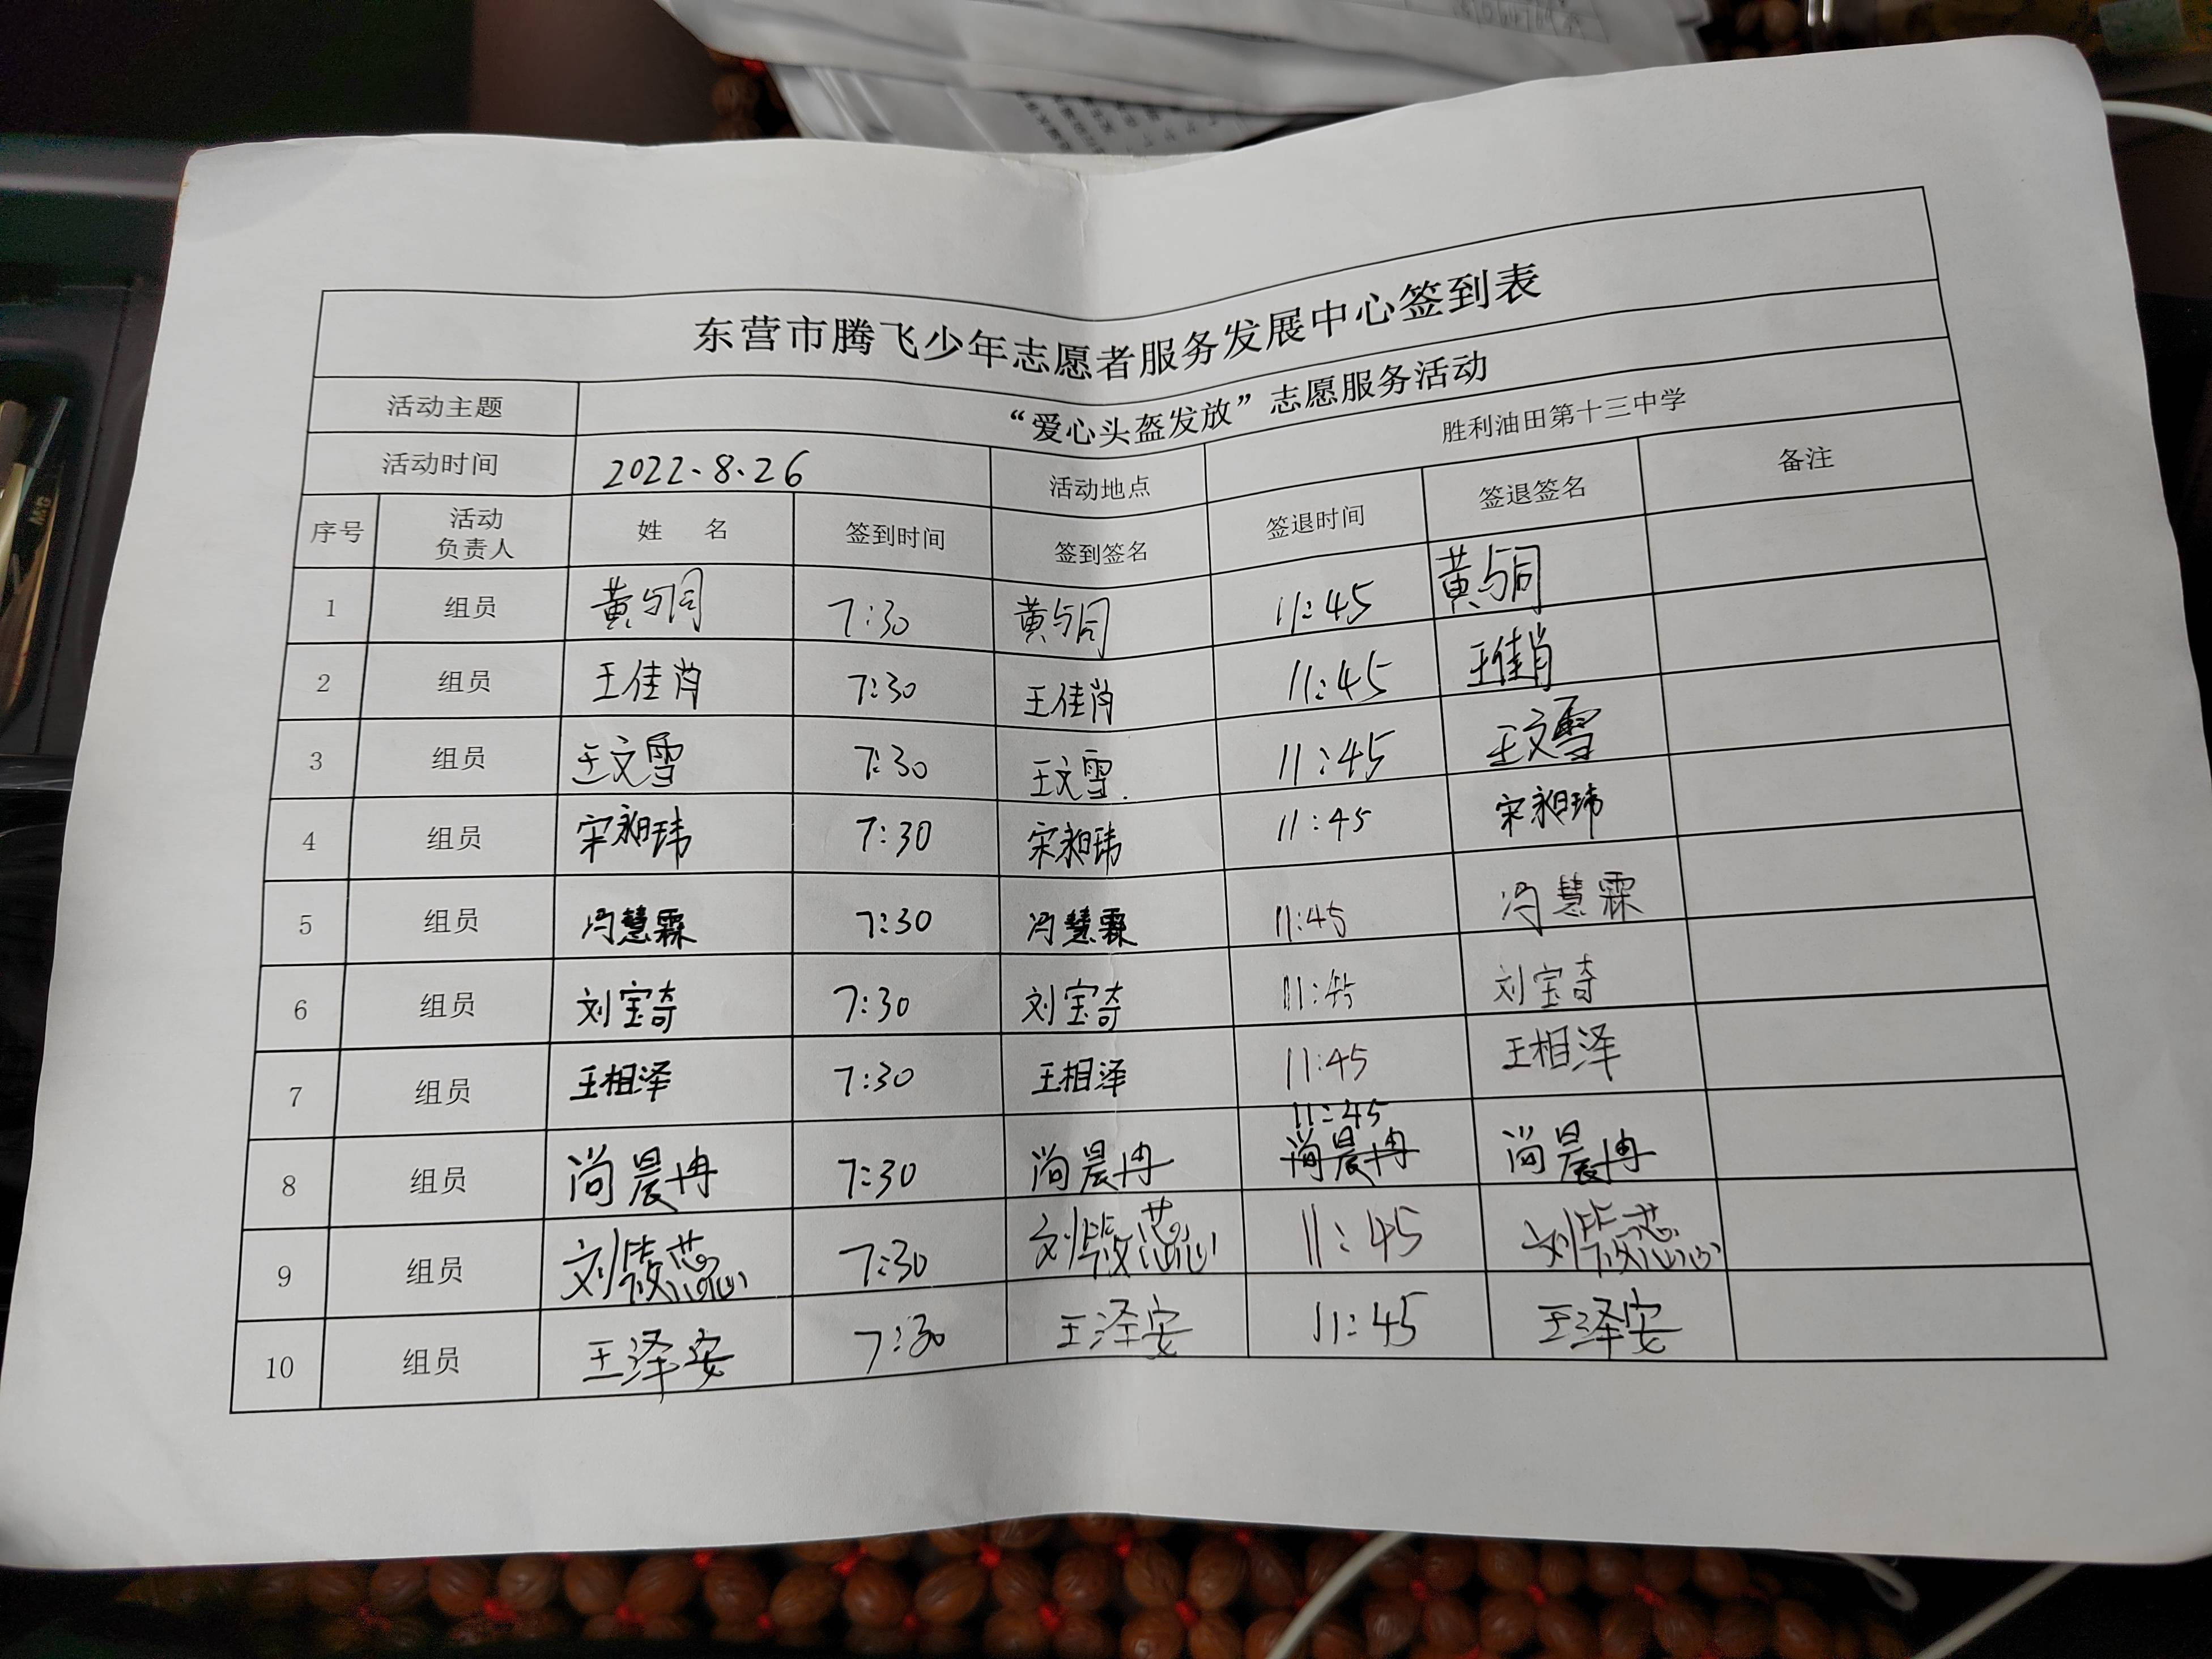 东营市腾飞少年志愿者服务发展中心签到表
活动主题 “爱心头盔发放”志愿服务活动
活动时间 2022.8.26 活动地点 胜利油田第十三中学
序号 活动负责人 姓 名 签到时间 签到签名 签退时间 签退签名 备注
1 组员 黄与同 7:30 黄与同 11:45 黄与同
2 组员 王佳肖 7:30 王佳肖 11:45 王佳肖
3 组员 王文雪 7:30 王文雪. 11:45 王文雪
4 组员 宋昶玮 7:30 宋昶玮 11:45 宋昶玮
5 组员 冯慧霖 7:30 冯慧霖 11:45 冯慧霖
6 组员 刘宝奇 7:30 刘宝奇 11:45 刘宝奇
7 组员 王相泽 7:30 王相泽 11:45 王相泽
8 组员 尚晨冉 7:30 尚晨冉 11:45 尚晨冉 尚晨冉
9 组员 刘 7:30 刘 11:45 刘
10 组员 王泽安 7:30 王泽安 11:45 王泽安